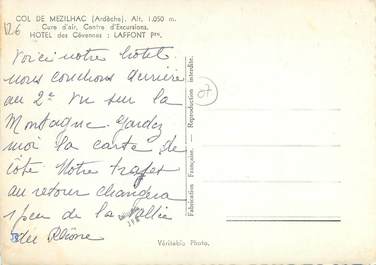 COL DE MEZILHAC (Ardèche). Alt. 1.050 m.
Cure d'air, Centre d'Excursions.
HOTEL des Cévennes : LAFFONT Pre.
126
Voici notre hôtel.
nous couchons derrière
au 2e vu sur la
Montagne. gardez
moi la carte de
côté. Notre trajet
au retour changera
1 peu de la Vallée
du Rhône
07
Fabrication Française. — Reproduction interdite.
Véritable Photo.